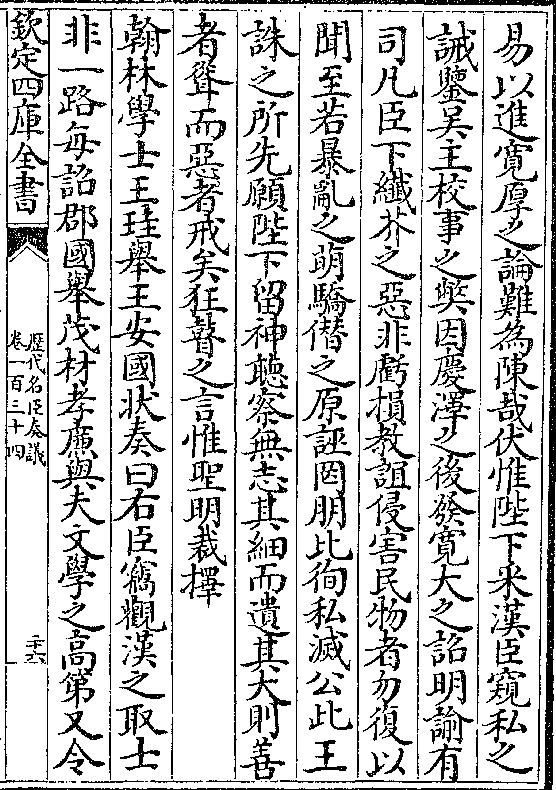 易以進寛厚之論難為陳哉伏惟陛下采漢臣窺私之
誡鑒吳主校事之獘因慶澤之後發寛大之詔明諭有
司凡臣下纖芥之惡非虧損教誼侵害民物者勿復以
聞至若暴亂之萌驕僭之原誣罔朋比徇私滅公此王
誅之所先願陛下留神聽察無志其細而遺其大則善
者聳而惡者戒矣狂瞽之言惟聖明裁擇
翰林學士王珪舉王安國狀奏曰右臣竊觀漢之取士
非一路每詔郡國舉茂材孝廉與夫文學之高第又令
欽定四庫全書
歷代名臣奏議
卷一百三十四
二十六